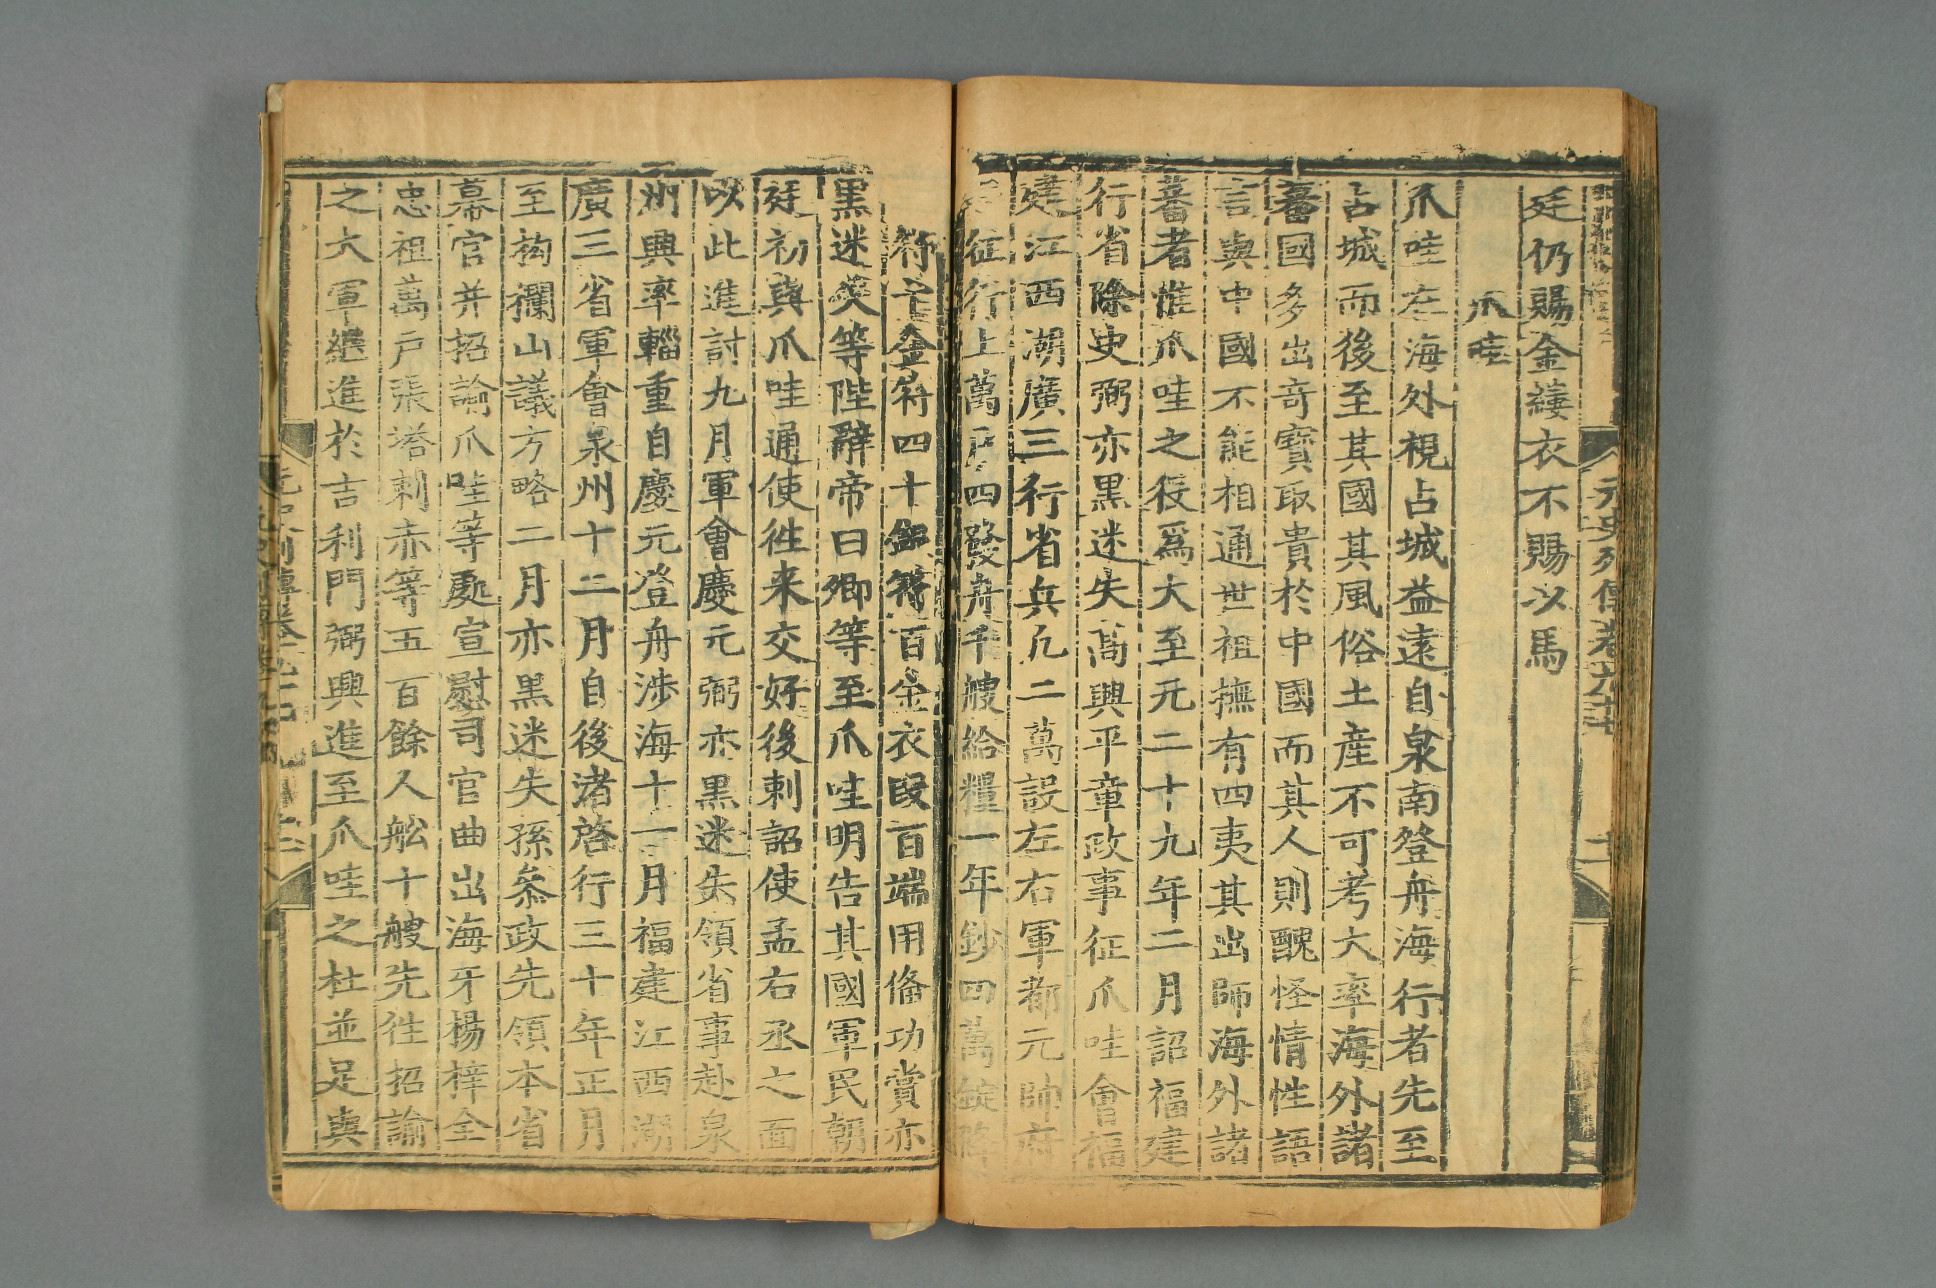 元史列傳卷九十七
廷仍賜金縷衣不賜以馬
爪哇
爪哇在海外視占城益遠自泉南登舟海行者先至
占城而後至其國其風俗土產不可考大率海外諸
蕃國多出奇寶取貴於中國而其人則醜怪情性語
言與中國不能相通世祖撫有四夷其出師海外諸
蕃者惟爪哇之役爲大至元二十九年二月詔福建
行省除史弼亦黑迷失高興平章政事征爪哇會福
建江西湖廣三行省兵凡二萬設左右軍都元帥府
征行上萬戶四發舟千艘給糧一年鈔四萬錠降
符十金符四十銀符百金衣段百端用備功賞亦
黑迷失等陛辭帝曰卿等至爪哇明告其國軍民朝
廷初與爪哇通使徃来交好後刺詔使孟右丞之面
以此進討九月軍會慶元弼亦黑迷失領省事赴泉
州興率輜重自慶元登舟涉海十一月福建江西湖
廣三省軍會泉州十二月自後渚啓行三十年正月
至构欄山議方略二月亦黑迷失孫叅政先領本省
幕官并招諭爪哇等處宣慰司官曲出海牙楊梓全
忠祖萬戸張塔剌赤等五百餘人舩十艘先徃招諭
之大軍繼進於吉利門弼興進至爪哇之杜並足與